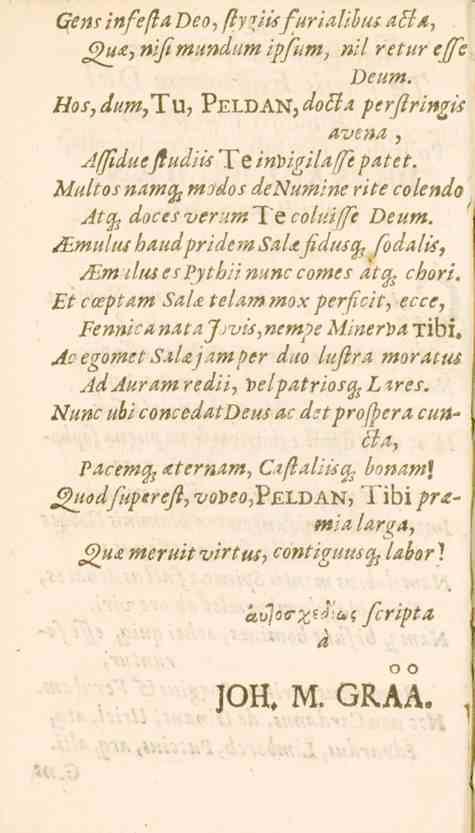 Gens infeſta Deo, ſtygiis furialibus acta,
Quæ, niſi mundum ipſum, nil retur eſſe
Deum.
Hos, dum, Tu, PELDAN, docta perſtringis
avena,
Aſſidue ſtudiis Te invigilaſſe patet.
Multos namq; modos de Numine rite colendo
Atq; doces verum Te coluiſſe Deum.
Æmulus haud pridem Salæ fidusq; ſodalis,
Æmulus es Pythii nunc comes atq; chori.
Et cœptam Salæ telam mox perficit, ecce,
Fennica nata Jovis, nempe Minerva Tibi.
Ac egomet Salæ jam per duo luſtra moratus
Ad Auram redii, vel patriosq; Lares.
Nunc ubi concedat Deus ac det proſpera cun-
cta,
Pacemq; æternam, Caſtaliisq; bonam!
Quod ſupereſt, voveo, PELDAN, Tibi præ-
mia larga,
Quæ meruit virtus, contiguusq; labor!
αυτοσχεδίως ſcripta
à
JOH. M. GRÅÅ.